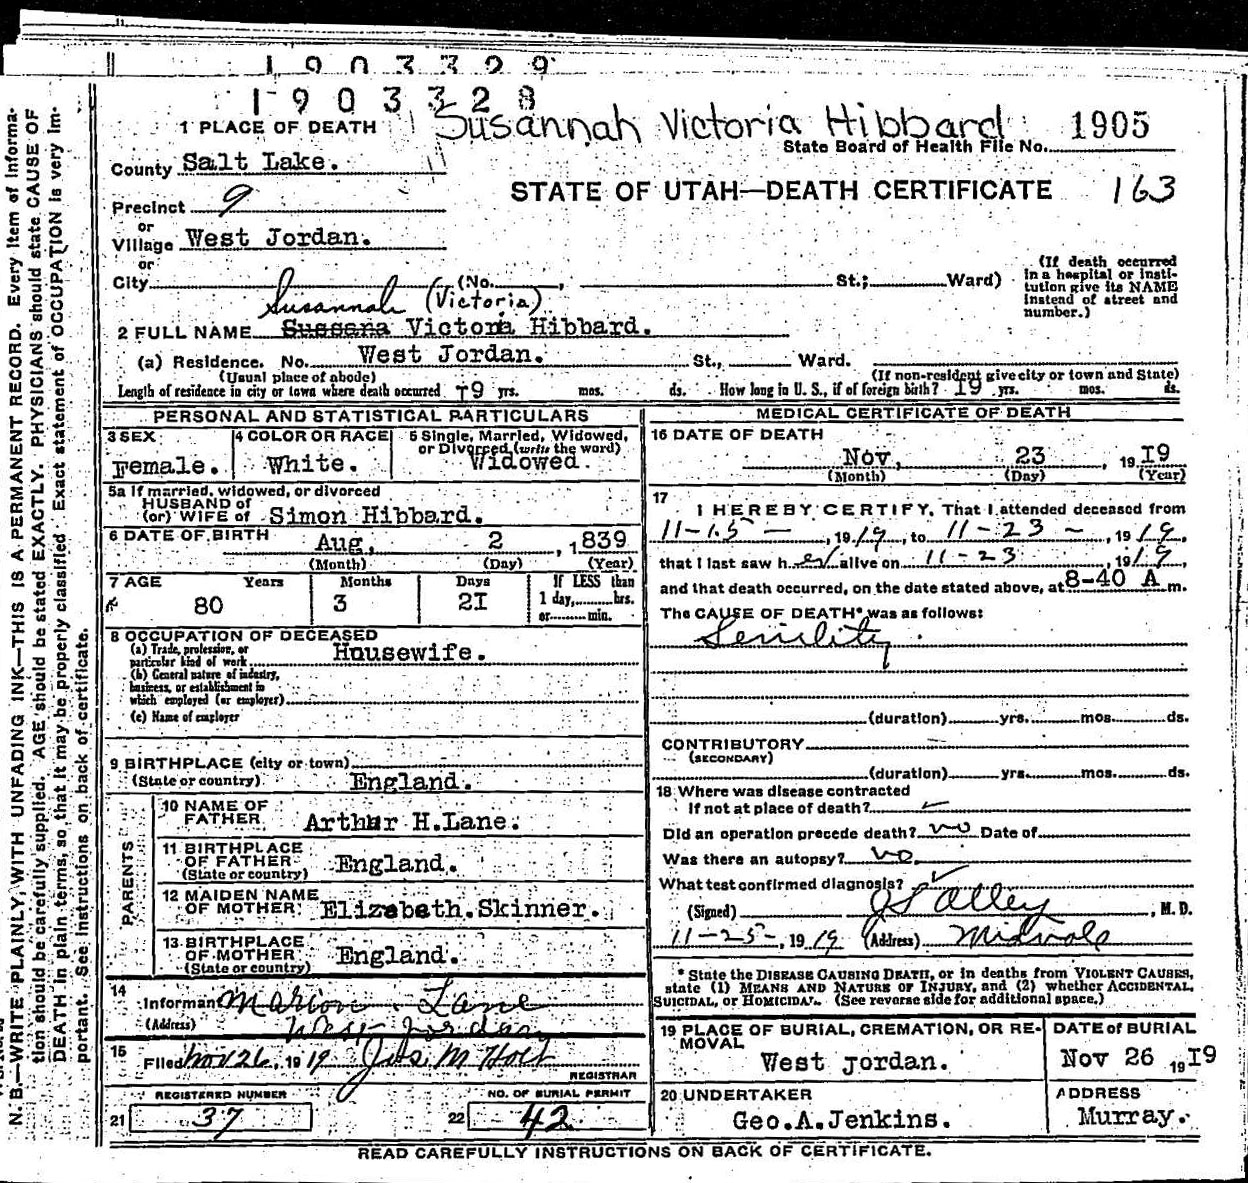 1903329
1903328
Susannah Victoria Hibbard 1905
1 PLACE OF DEATH
State Board of Health File No.
County Salt Lake.
STATE OF UTAH—DEATH CERTIFICATE 163
Precinct 9
or
Village West Jordan.
or
City (No. , St.; Ward)
(If death occurred in a hospital or institution give its NAME instead of street and number.)
Susannah (Victoria)
2 FULL NAME Sussana Victoria Hibbard.
(a) Residence. No. West Jordan. St., Ward.
(Usual place of abode) (If non-resident give city or town and State)
Length of residence in city or town where death occurred 19 yrs. mos. ds. How long in U. S., if of foreign birth? 19 yrs. mos. ds.
PERSONAL AND STATISTICAL PARTICULARS
3 SEX 4 COLOR OR RACE 5 Single, Married, Widowed,
or Divorced (write the word)
Female. White. Widowed.
5a If married, widowed, or divorced
HUSBAND of
(or) WIFE of Simon Hibbard.
6 DATE OF BIRTH Aug, 2, 1839
(Month) (Day) (Year)
7 AGE Years Months Days If LESS than
80 3 2I 1 day, hrs.
or min.
8 OCCUPATION OF DECEASED
(a) Trade, profession, or
particular kind of work Housewife.
(b) General nature of industry,
business, or establishment in
which employed (or employer)
(c) Name of employer
9 BIRTHPLACE (city or town)
(State or country) England.
PARENTS
10 NAME OF
FATHER Arthur H.Lane.
11 BIRTHPLACE
OF FATHER England.
(State or country)
12 MAIDEN NAME
OF MOTHER Elizabeth.Skinner.
13 BIRTHPLACE
OF MOTHER England.
(State or country)
14
Informant Marion Lane
(Address) West Jordan
15
Filed Nov 26, 1919 Jas. M Holt
REGISTRAR
REGISTERED NUMBER NO. OF BURIAL PERMIT
21 37 22 42
MEDICAL CERTIFICATE OF DEATH
16 DATE OF DEATH
Nov, 23, 19I9
(Month) (Day) (Year)
17
I HEREBY CERTIFY, That I attended deceased from
11-15-, 1919, to 11-23-, 1919,
that I last saw her alive on 11-23, 1919,
and that death occurred, on the date stated above, at 8-40 A m.
The CAUSE OF DEATH* was as follows:
Senility
(duration) yrs. mos. ds.
CONTRIBUTORY
(SECONDARY)
(duration) yrs. mos. ds.
18 Where was disease contracted
If not at place of death?
Did an operation precede death? no Date of
Was there an autopsy? no
What test confirmed diagnosis?
(Signed) Alley, M. D.
11-25-, 1919 (Address) Midvale
* State the DISEASE CAUSING DEATH, or in deaths from VIOLENT CAUSES,
state (1) MEANS AND NATURE OF INJURY, and (2) whether ACCIDENTAL,
SUICIDAL, or HOMICIDAL. (See reverse side for additional space.)
19 PLACE OF BURIAL, CREMATION, OR RE-
MOVAL
West Jordan.
DATE of BURIAL
Nov 26 19I9
20 UNDERTAKER
Geo.A.Jenkins.
ADDRESS
Murray.
READ CAREFULLY INSTRUCTIONS ON BACK OF CERTIFICATE.
N. B.—WRITE PLAINLY, WITH UNFADING INK—THIS IS A PERMANENT RECORD. Every item of informa-
tion should be carefully supplied. AGE should be stated EXACTLY. PHYSICIANS should state CAUSE OF
DEATH in plain terms, so that it may be properly classified. Exact statement of OCCUPATION is very im-
portant. See instructions on back of certificate.